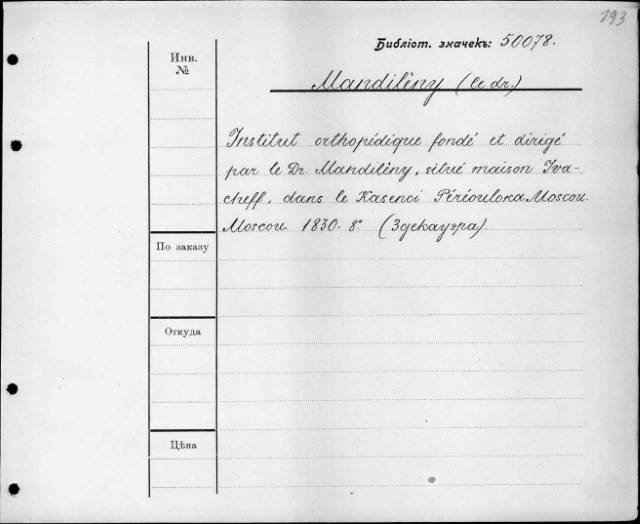 193
Библіот. значекъ: 50078.
Инв.
№
Mandilény (le dr.)
Institut orthopédique fondé et dirigé
par le Dr. Mandilény, situé maison Iva-
cheff, dans le Kasenoi Péréoulona Moscou.
Moscou 1830. 8° (Здекауэра)
По заказу
Откуда
Цѣна